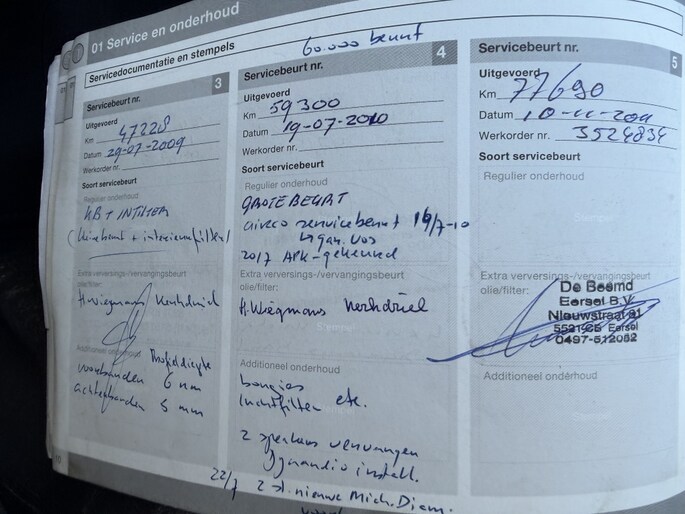 01 Service en onderhoud
Servicedocumentatie en stempels
60.000 beurt
Servicebeurt nr. 3
Uitgevoerd
Km 47228
Datum 29-07-2009
Werkorder nr.
Soort servicebeurt
Regulier onderhoud
KB + INTFILTER
(kleine beurt + interieurfilter)
Extra verversings-/vervangingsbeurt
olie/filter:
H. Wiegmans Kerkdriel
Additioneel
Profieldiepte
voorbanden 6 mm
achterbanden 5 mm
Servicebeurt nr. 4
Uitgevoerd
Km 59300
Datum 19-07-2010
Werkorder nr.
Soort servicebeurt
Regulier onderhoud
GROTE BEURT
airco servicebeurt 16/7-10
20/7 APK-gekeurd
Extra verversings-/vervangingsbeurt
olie/filter:
H. Wiegmans Kerkdriel
Additioneel onderhoud
bougies
luchtfilter etc.
2 speakers vervangen
install.
22/7 2 st. nieuwe Mich. Diam.
Servicebeurt nr. 5
Uitgevoerd
Km 77690
Datum 10-11-2011
Werkorder nr. 3524834
Soort servicebeurt
Regulier onderhoud
Extra verversings-/vervangingsbeurt
olie/filter:
De Beemd
Eersel B.V.
Nieuwstraat 91
5521 CB Eersel
0497-512052
Additioneel onderhoud